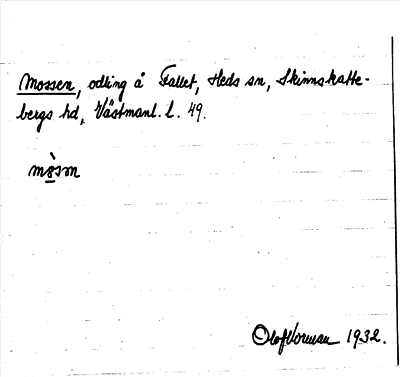 Mossen, odling å Fallet, Heds sn, Skinnskatte-
bergs hd, Västmanl. l. 49.
mòsm
Olof Vorman 1932.